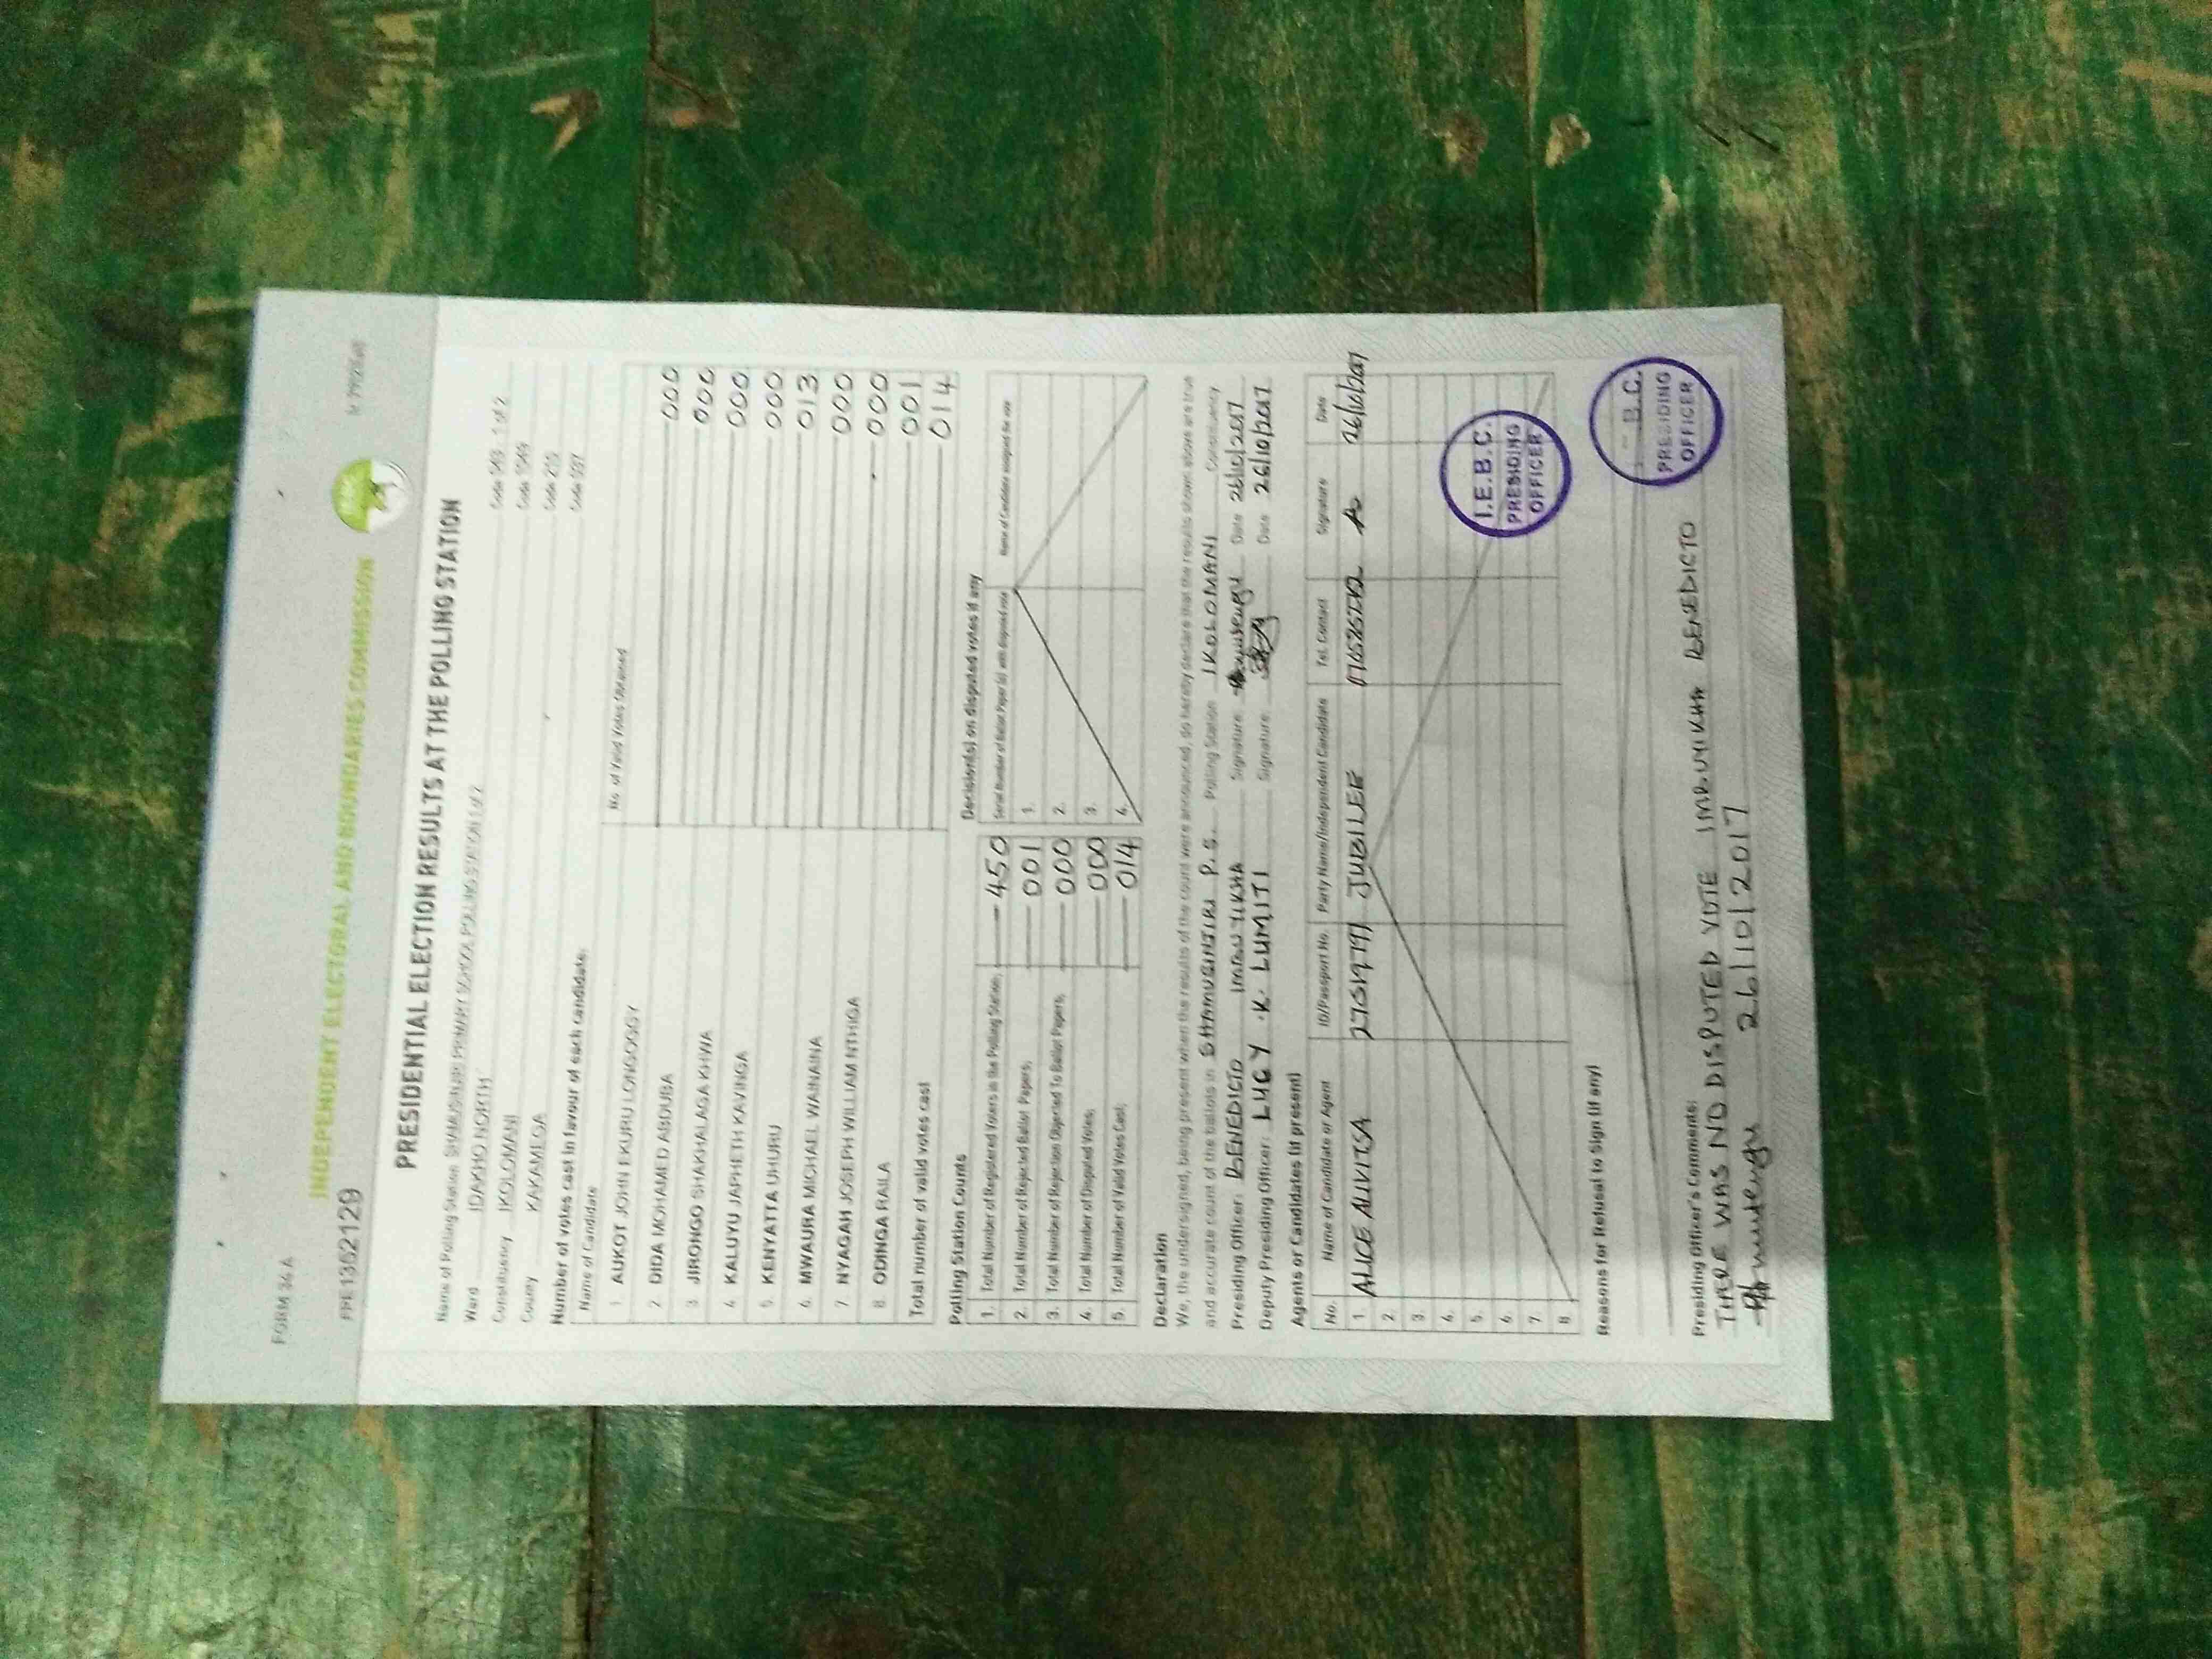 FORM 34 A
INDEPENDENT ELECTORAL AND BOUNDARIES COMMISSION
PRE1362129
PRESIDENTIAL ELECTION RESULTS AT THE POLLING STATION
Name of Polling Station PRIMARY SCHOOL POLLING STATION 1 of 2 Code 1 of 2
Ward IDAKHO NORTH Code
Constituency IKOLOMANI Code
County KAKAMEGA Code
Number of votes cast in favour of each candidate:
Name of Candidate No. of Valid Votes Obtained
1. AUKOT JOHN EKURU LONGOGGY 000
2. DIDA MOHAMED ABDUBA 000
3. JIRONGO SHAKHALAGA KHWA 000
4. KALUYU JAPHETH KAVINGA 000
5. KENYATTA UHURU 013
6. MWAURA MICHAEL WAINAINA 000
7. NYAGAH JOSEPH WILLIAM NTHIGA 000
8. ODINGA RAILA 001
Total number of valid votes cast 014
Polling Station Counts
1. Total Number of Registered Voters in the Polling Station; 450
2. Total Number of Rejected Ballot Papers; 001
3. Total Number of Rejection Objected To Ballot Papers; 000
4. Total Number of Disputed Votes; 000
5. Total Number of Valid Votes Cast; 014
Decision(s) on disputed votes if any
Serial Number of Ballot Paper (s) with disputed vote Name of Candidate assigned the vote
1.
2.
3.
4.
Declaration
We, the undersigned, being present when the results of the count were announced, do hereby declare that the results shown above are true
and accurate count of the ballots in SHAMUSINJIRI P.S. Polling Station IKOLOMANI Constituency
Presiding Officer: BENEDICTO IMBUYIKHA Signature Date 26/10/2017
Deputy Presiding Officer: LUCY .K. LUMITI Signature: Date 26/10/2017
Agents or Candidates (if present)
No. Name of Candidate or Agent ID/Passport No. Party Name/Independent Candidate Tel. Contact Signature Date
1. ALICE ALIVITSA JUBILEE 26/10/2017
2.
3.
4.
5.
6.
7.
8.
I.E.B.C.
PRESIDING
OFFICER
Reasons for Refusal to Sign (if any)
B.C.
PRESIDING
OFFICER
Presiding Officer's Comments:
THERE WAS NO DISPUTED VOTE IMBUYIKHA BENEDICTO
26/10/2017